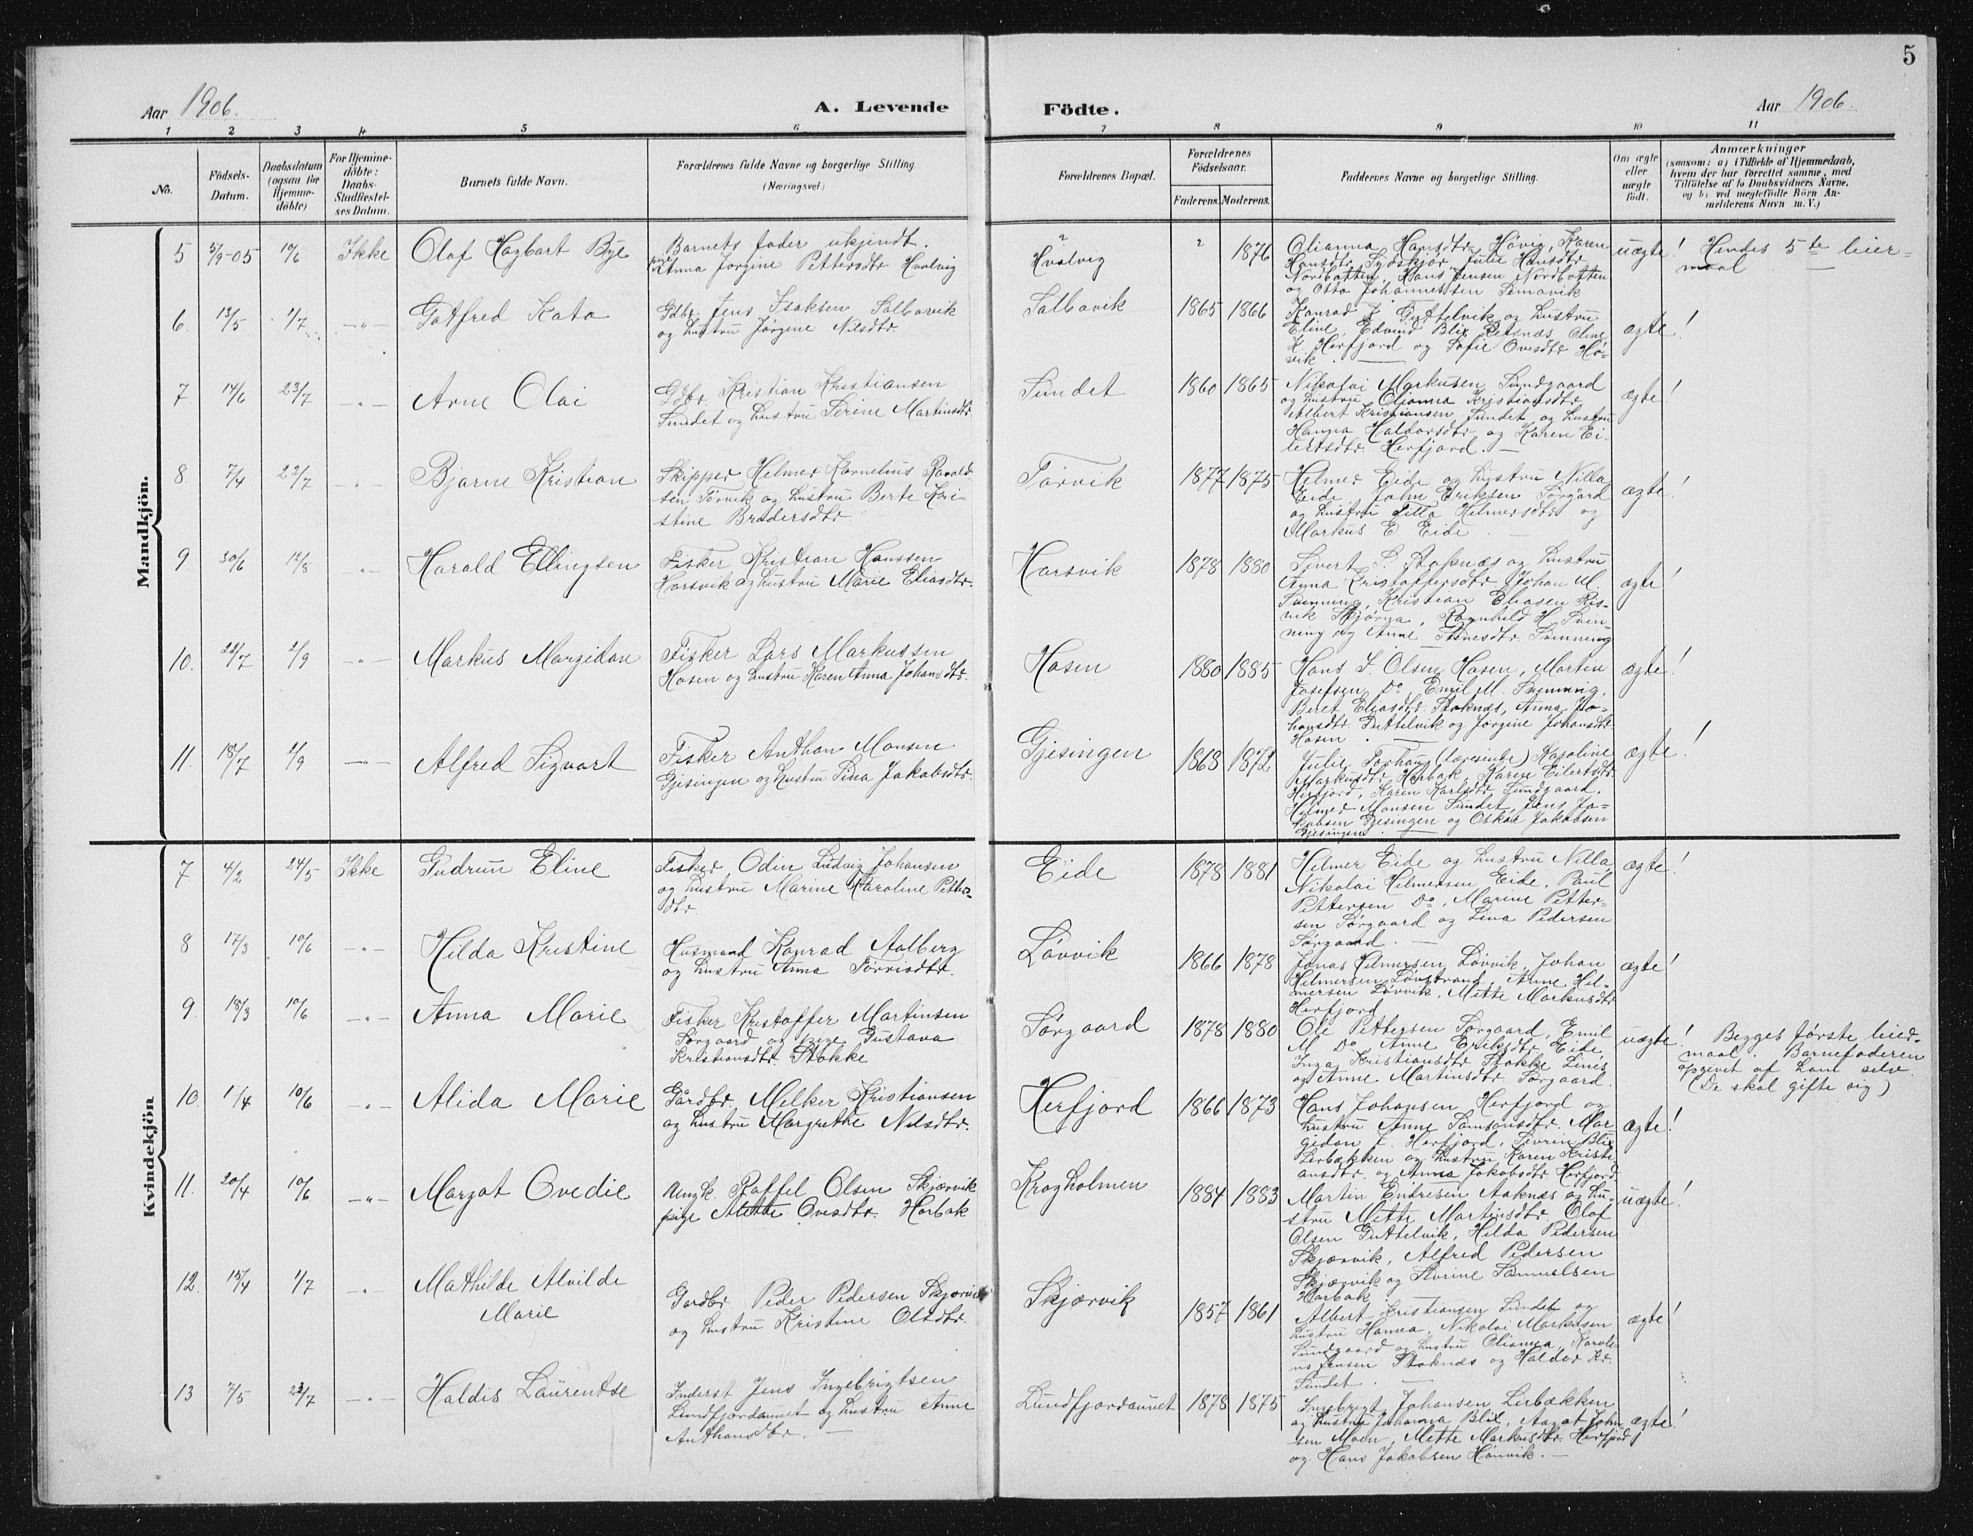 5
Aar 1906. A. Levende Födte. Aar 1906.
1 2 3 4 5 6 7 8 9 10 11
No.
Födsels-
Datum.
Daabsdatum
(ogsaa for
Hjemme-
döbte)
For Hjemme-
döbte:
Daabs-
Stadfæstel-
ses Datum.
Barnets fulde Navn.
Forældrenes fulde Navne og borgerlige Stilling.
(Næringsvei)
Forældrenes Bopæl.
Forældrenes
Födselsaar.
Faderens. Moderens.
Faddernes Navne og borgerlige Stilling.
Om ægte
eller
uægte
födt.
Anmærkninger
(saasom: a) i Tilfælde af Hjemmedaab,
hvem der har forrettet samme, med
Tilföielse af to Daabsvidners Navne,
og b) ved uægtefödte Börn An-
melderens Navn m. V.)
Mandkjön.
5 5/9-05 10/6 Ikke Olaf Hagbart Bye
Barnets fader ukjendt.
pige Anna Jorgine Pettersdtr Hvalvig
Hvalvig 1876
Olianna Hansdtr Høvig, Karen
Hansdtr Sydskjør, Julie Hansdtr
Nordbotten, Hans Jensen Nordbotten
og Otto Johannessen
uægte! Hendes 5te leier-
maal
6 13/5 1/7 Gotfred Kato
Gdbr Jens Isaksen Salbovik
og hustru Jørgine Nilsdtr
Salbovik 1865 1866
Konrad J. Guttelvik og hustru
Eline, Edvind Blix Refsnæs, Oline
K. Herfjord og Sofie Ovesdtr Hø-
vik.
ægte!
7 14/6 23/7 Arne Olai
Gdbr Kristian Kristiansen
Sundet og hustru Serine Martinsdtr
Sundet 1860 1865
Nikolai Markusen Sundgaard
og hustru Olianna Kristiansdtr
Albert Kristiansen Sundet og hustru
Hanna Haldorsdtr og Karen Ei-
lertsdtr Herfjord.
ægte!
8 7/4 22/7 Bjarne Kristian
Skipper Helmer Kornelius Ravald
sen Tørvik og hustru Berte Kri-
stine Brodersdtr
Tørvik 1877 1875
Helmer Eide og hustru Nilla
Eide, John Eriksen Sørgård
og hustru Jetta Helmersdtr og
Markus E. Eide
ægte!
9 30/6 12/8 Harald Ellingsen
Fisker Kristian Hanssen
Harsvik og hustru Marie Eliasdtr.
Harsvik 1878 1880
Sivert P. Stoknæs og hustru
Anna Kristoffersdtr, Johan M.
Svenning, Kristian Eliasen Ris-
vik Skjørja, Ragnhild H. Sven-
ning og Anne Svenning
ægte!
10. 22/7 2/9 Markus Margidan
Fisker Lars Markussen
Hosen og hustru Karen Anna Johansdtr.
Hosen 1880 1885
Hans S. Olsen Hosen, Martin
Josefsen Do, Emil M. Svenning,
Beret Eliasdtr Stoknæs, Anna Jo-
hansdtr Guttelvik og Jørgine Johansdtr
Hosen.
ægte!
11. 18/7 2/9 Alfred Sigvart
Fisker Anthon Monsen
Gjesingen og hustru Sina Jakobsdtr.
Gjesingen 1868 1872
Julie Forhaug (lærerinde) Karoline
Markusdtr Harbak, Karen Eilertsdtr
Herfjord, Karen Karlsdtr Sundgaard,
Helmer Monsen Sundet, Jens Ja-
kobsen Gjesingen og Oskar Jakobsen
Gjesingen.
ægte!
Kvindekjön
7 4/2 24/5 Ikke Gudrun Eline
Fisker Odin Ludvig Johansen
og hustru Marine Karoline Petters-
dtr
Eide 1878 1881
Helmer Eide og hustru Nilla,
Nikolai Helmersen Eide, Paul
Pettersen Do, Marine Petter-
sen Sørgaard og Lina Pedersen
Sørgaard.
ægte!
8 17/3 10/6 Hilda Kristine
Husmand Konrad Aalberg
og hustru Anna Tørrisdtr.
Løvvik 1866 1878
Jonas Helmersen Løvvik, Johan
Helmersen Løvstrand, Anne Hel-
mersen Løvvik, Mette Markusdtr
Herfjord
ægte!
9. 18/3 10/6 Anna Marie
Fisker Kristoffer Martinsen
Sørgaard og pige Gustava
Kristiansdtr Stokke
Sørgaard 1878 1880
Ole Pettersen Sørgaard, Emil
M. Do, Anne Eriksdtr Eide,
Inga Kristiansdtr Stokke Lines
og Anne Martinsdtr Sørgaard.
uægte! Begges første leier-
maal. Barnefaderen
opgivet af ham selv.
(De skal gifte sig)
10. 1/4 10/6 Alida Marie
Gårdbr Melker Kristiansen
og hustru Margrethe Nilsdtr.
Herfjord 1866 1873
Hans Johansen Herfjord og
hustru Anne Samsonsdtr. Mar
gidan J. Herfjord, Sevren Blix
Lerbækken og hustru Karen Kristi-
ansdtr og Anna Jakobsdtr Herfjord
ægte!
11. 20/4 10/6 Margot Ovedie
Ungk. Roffel Olsen Skjærvik
pige Alette Ovesdtr. Harbak
Kragholmen 1884 1883
Martin Endresen Aaknæs og hu-
stru Mette Martinsdtr Olaf
Olsen Guttelvik, Hilda Pedersen
Skjærvik, Alfred Pedersen
Skjærvik og Sivrine Samuelsen
Harbak
uægte!
12. 15/4 1/7 Mathilde Alvilde
Marie
Gardbr Peder Pedersen Skjærvik
og hustru Kristine Olsdtr.
Skjærvik 1857 1861
Albert Kristiansen Sundet og
hustru Hanna, Nikolai Markusen
Sundgaard og hustru Olianna, Karoli-
us Jensen Stoknæs og Haldor Kr.
Sundet.
ægte!
13 7/5 23/7 Haldis Laurentse
Inderst Jens Ingebrigtsen
Lundfjordaunet og hustru Anne
Anthonsdtr.
Lundfjordaunet 1878 1875
Ingebrigt Johansen Lerbækken
og hustru Johanna Blix, Aagot John
sen Moen, Mette Markusdtr Herfjord
og Hans Jakobsen Hønvik.
ægte!